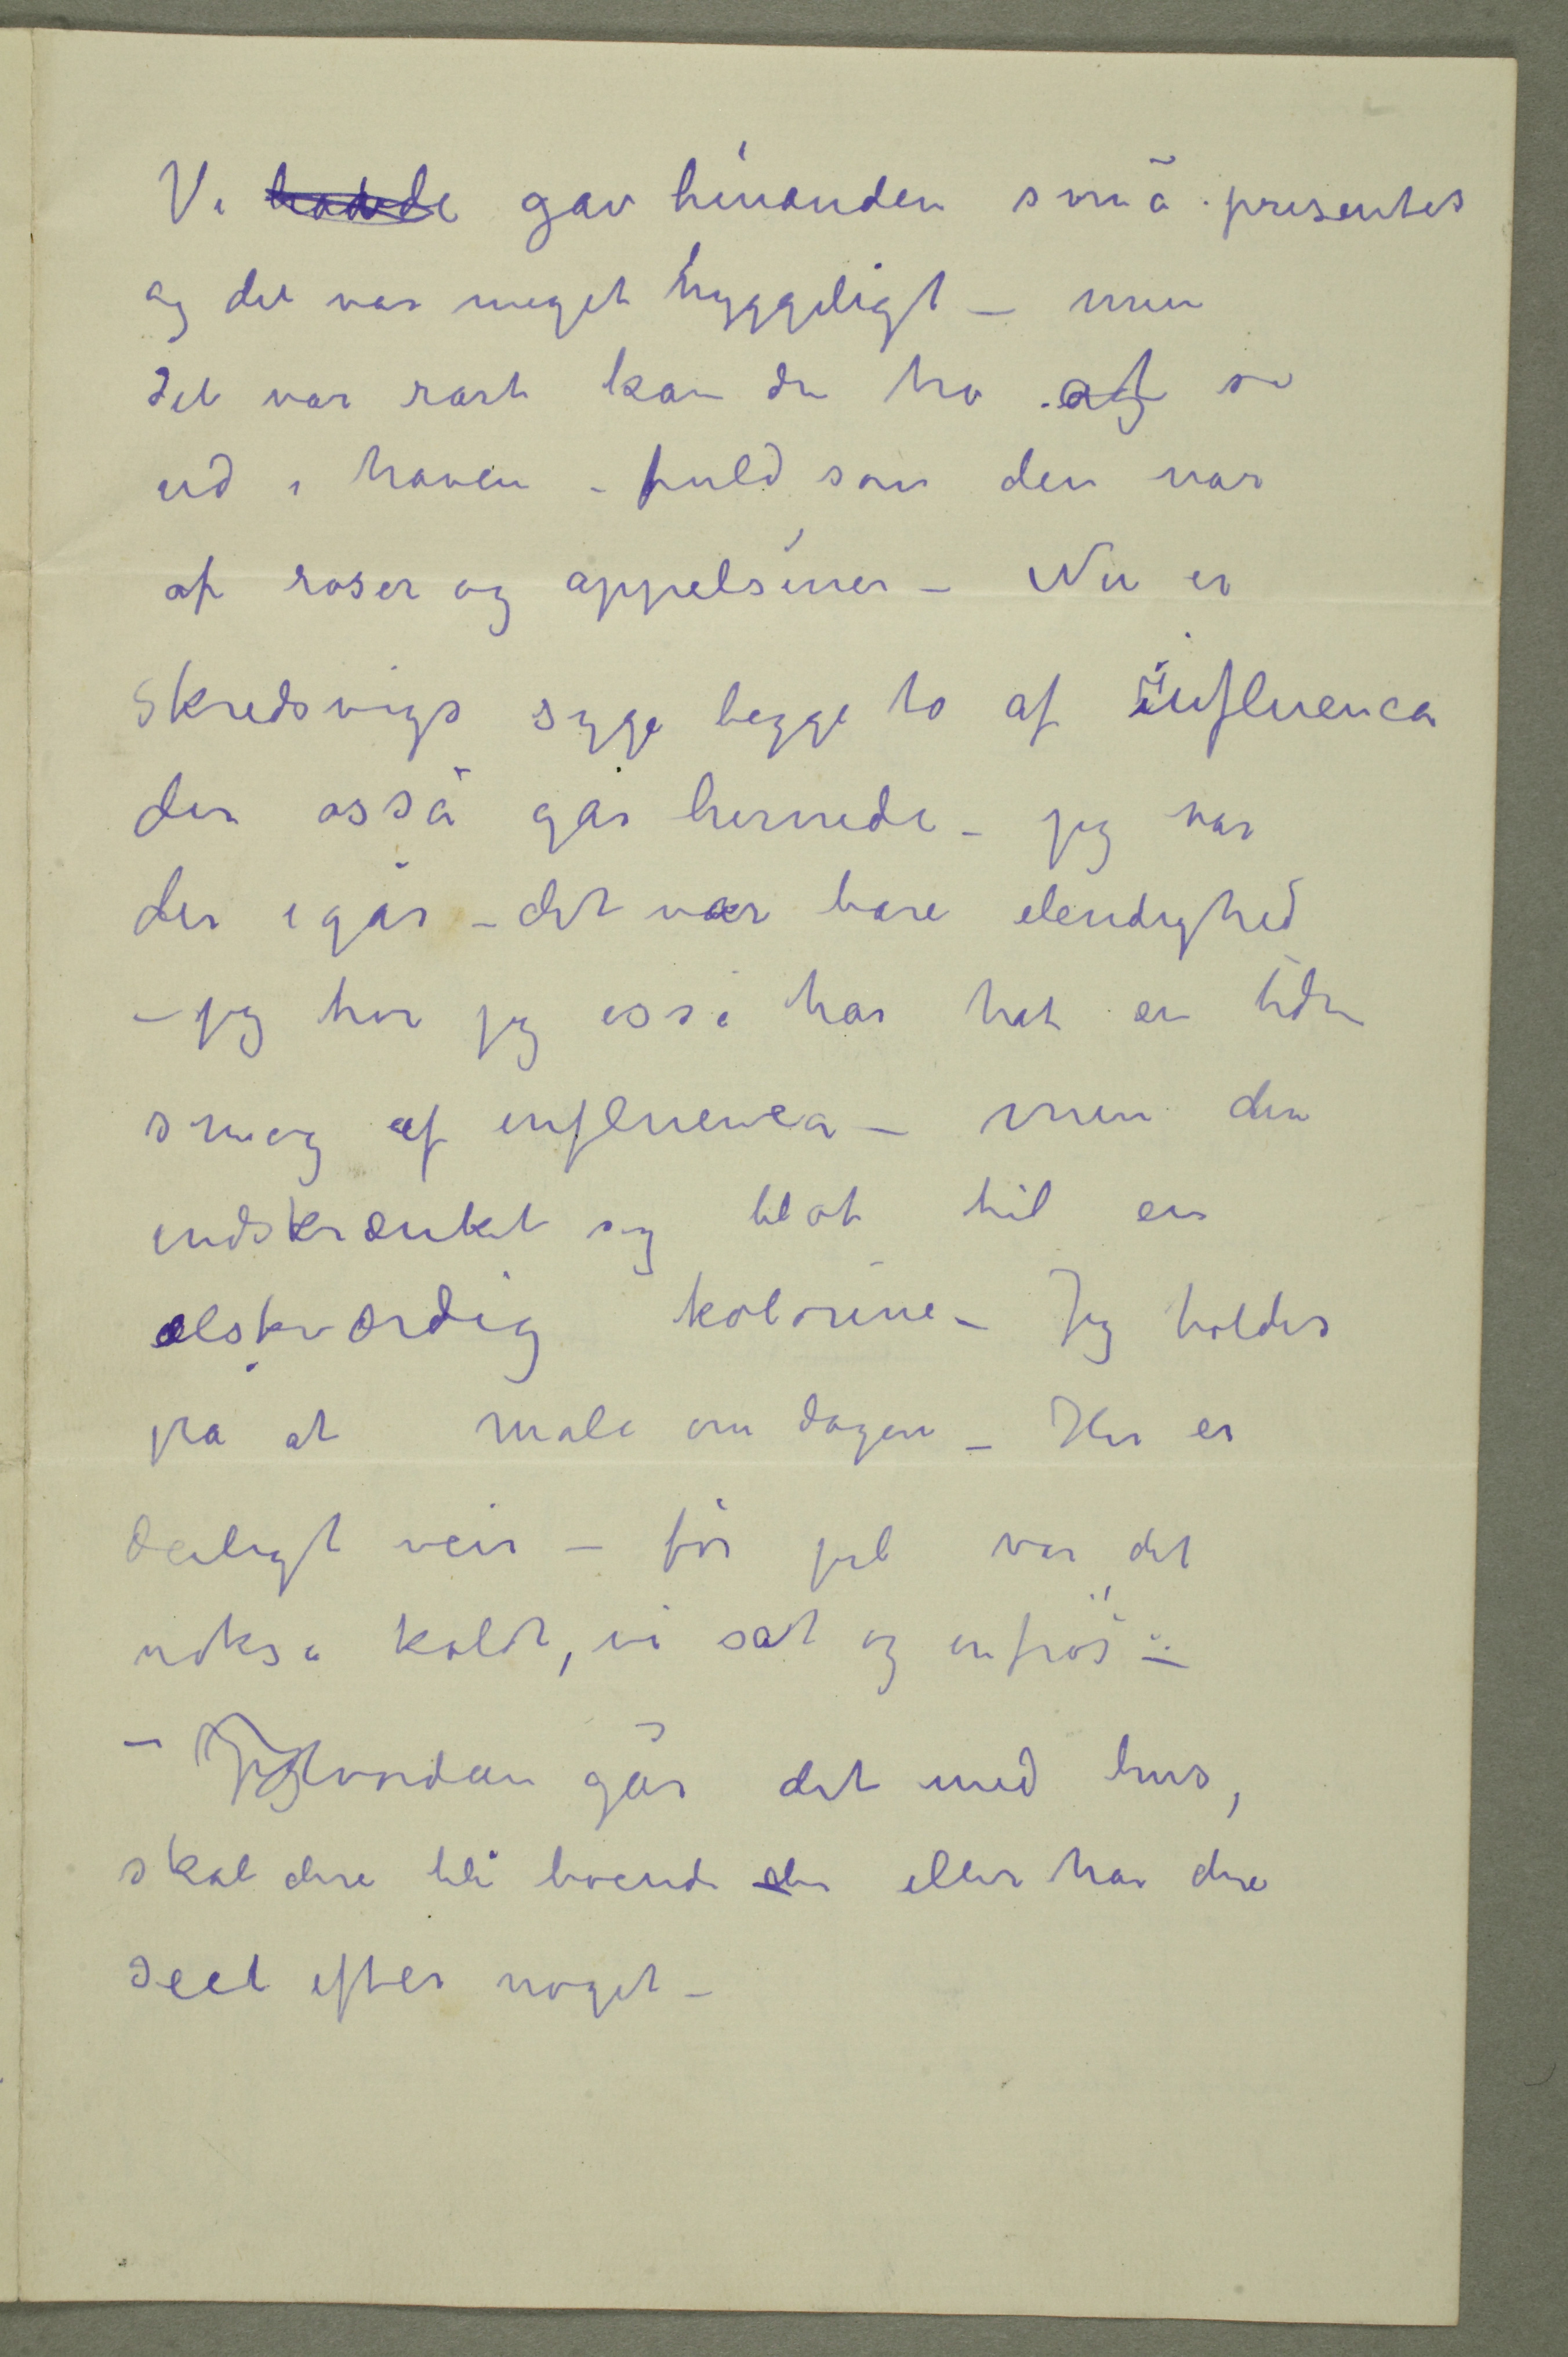 Vi hadde gav hinanden små presenter
og det var meget hyggeligt – men
det var rart kan du tro at se
ud i haven – fuld som den var
af roser og appelsiner – Nu er
Skredsvigs syge begge to af influenca
der osså går hernede – jeg var
der igår – det var bare elendighed
– jeg tror jeg osså har hat en liden
smag af influenca – men den
indskrænket sig blot til en
elskværdig kolorine – Jeg holder
på at male om dagen – Her er
deiligt veir – før jul var det
nokså koldt, vi sat og
– Hvordan går det med hus,
skal dere bli boende der eller har dere
seet efter noget –